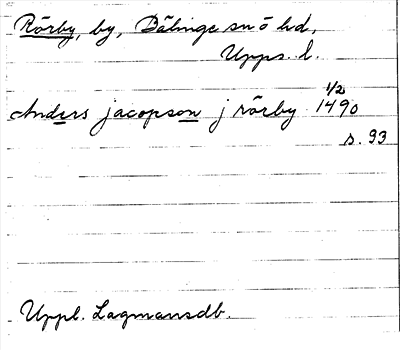 Rörby, by, Bälinge sn o hd,
Upps. l.
1/2
Anders jacopson j rörby 1490
s. 93
Uppl. Lagmansdb.